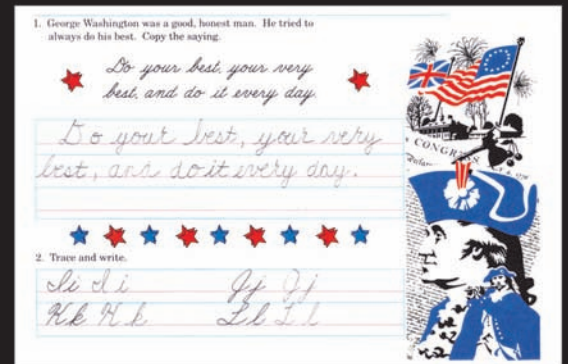 1. George Washington was a good, honest man. He tried to
always do his best. Copy the saying.
Do your best, your very
best, and do it every day.
Do your best, your very
best, and do it every day.
CONGRESS
2. Trace and write.
Ii Ii Jj Jj
Kk Kk Ll Ll